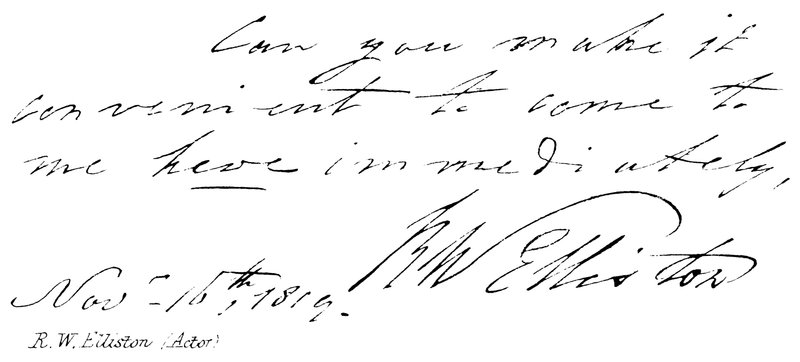 Can you make it
convenient to come to
me here immediately,
RW Elliston
Novr 16th, 1819.
R. W. Elliston (Actor)